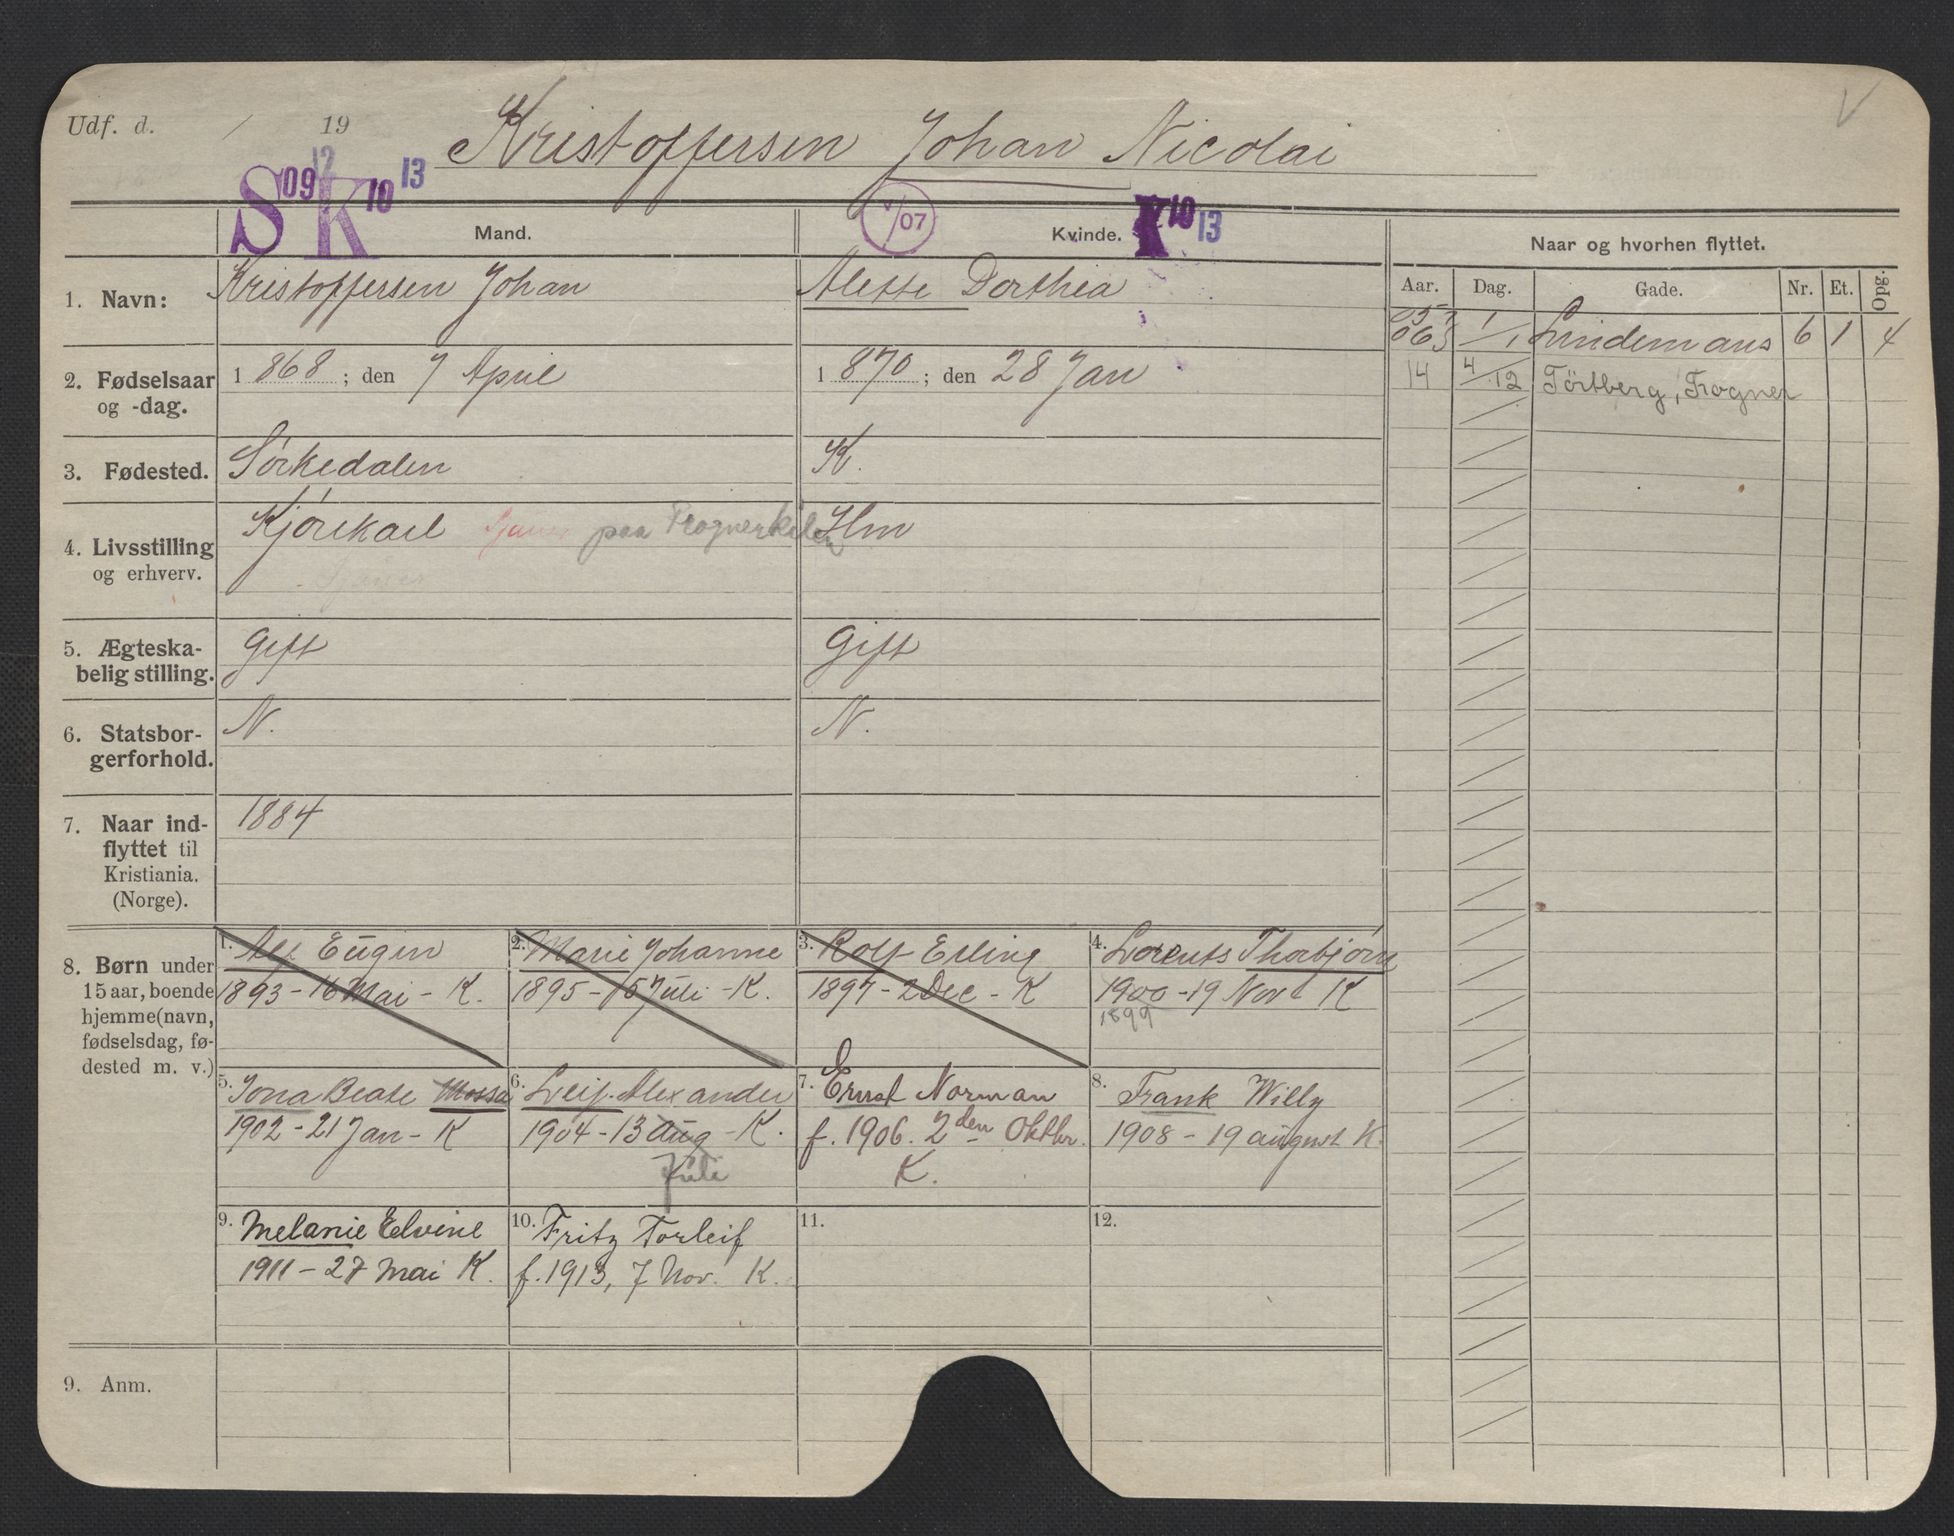 Udf. d. / 19 Kristoffersen Johan Nicolai V
S 09 12 K 10 13 V/07 K 10 13
Mand. Kvinde. Naar og hvorhen flyttet.
Aar. Dag. Gade. Nr. Et. Opg.
1. Navn: Kristoffersen Johan Alette Dorthea
06 1/1 Lindemans 6 1 4
14 4/12 Törtberg, Frogner
2. Fødselsaar og -dag. 1868; den 7 April 1870; den 28 Jan
3. Fødested. Sörkedalen K.
4. Livsstilling og erhverv. Kjörekarl paa Frognerkilen Hm
Sjauer
5. Ægteska-
belig stilling. Gift Gift
6. Statsbor-
gerforhold. N. N.
7. Naar ind-
flyttet til
Kristiania.
(Norge). 1884
8. Børn under
15 aar, boende
hjemme (navn,
fødselsdag, fø-
dested m. v.)
1. Alf Eugen
1893 - 16 Mai - K.
2. Marie Johanne
1895 - 15 Juli - K.
3. Rolf Erling
1897 - 2 Dec - K
4. Lorents Thorbjörn
1900 - 19 Nov K
1899
5. Jona Beate Mossa
1902 - 21 Jan - K
6. Leif Alexander
1904 - 13 Aug - K.
Juli
7. Ernst Norman
f. 1906. 2den Oktbr.
K.
8. Frank Willy
1908 - 19 august K.
9. Melanie Elvine
1911 - 27 Mai K.
10. Fritz Torleif
f. 1913, 7 Nov. K.
11.
12.
9. Anm.